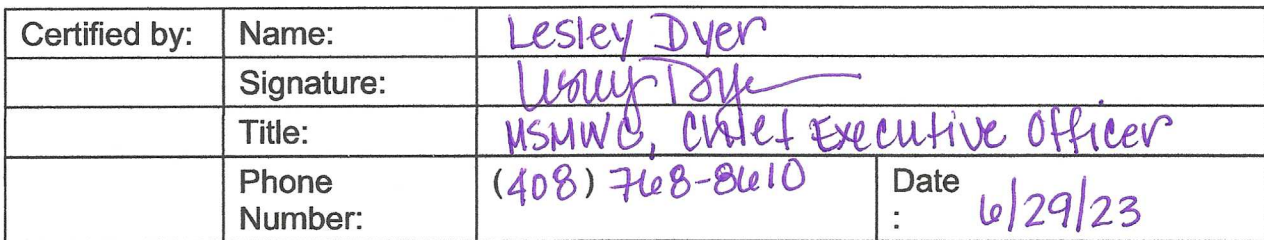 Certified by: Name: Lesley Dyer
Signature: Lesley Dye
Title: MSMWC, Chief Executive Officer
Phone Number: (408) 768-8610 Date : 6/29/23